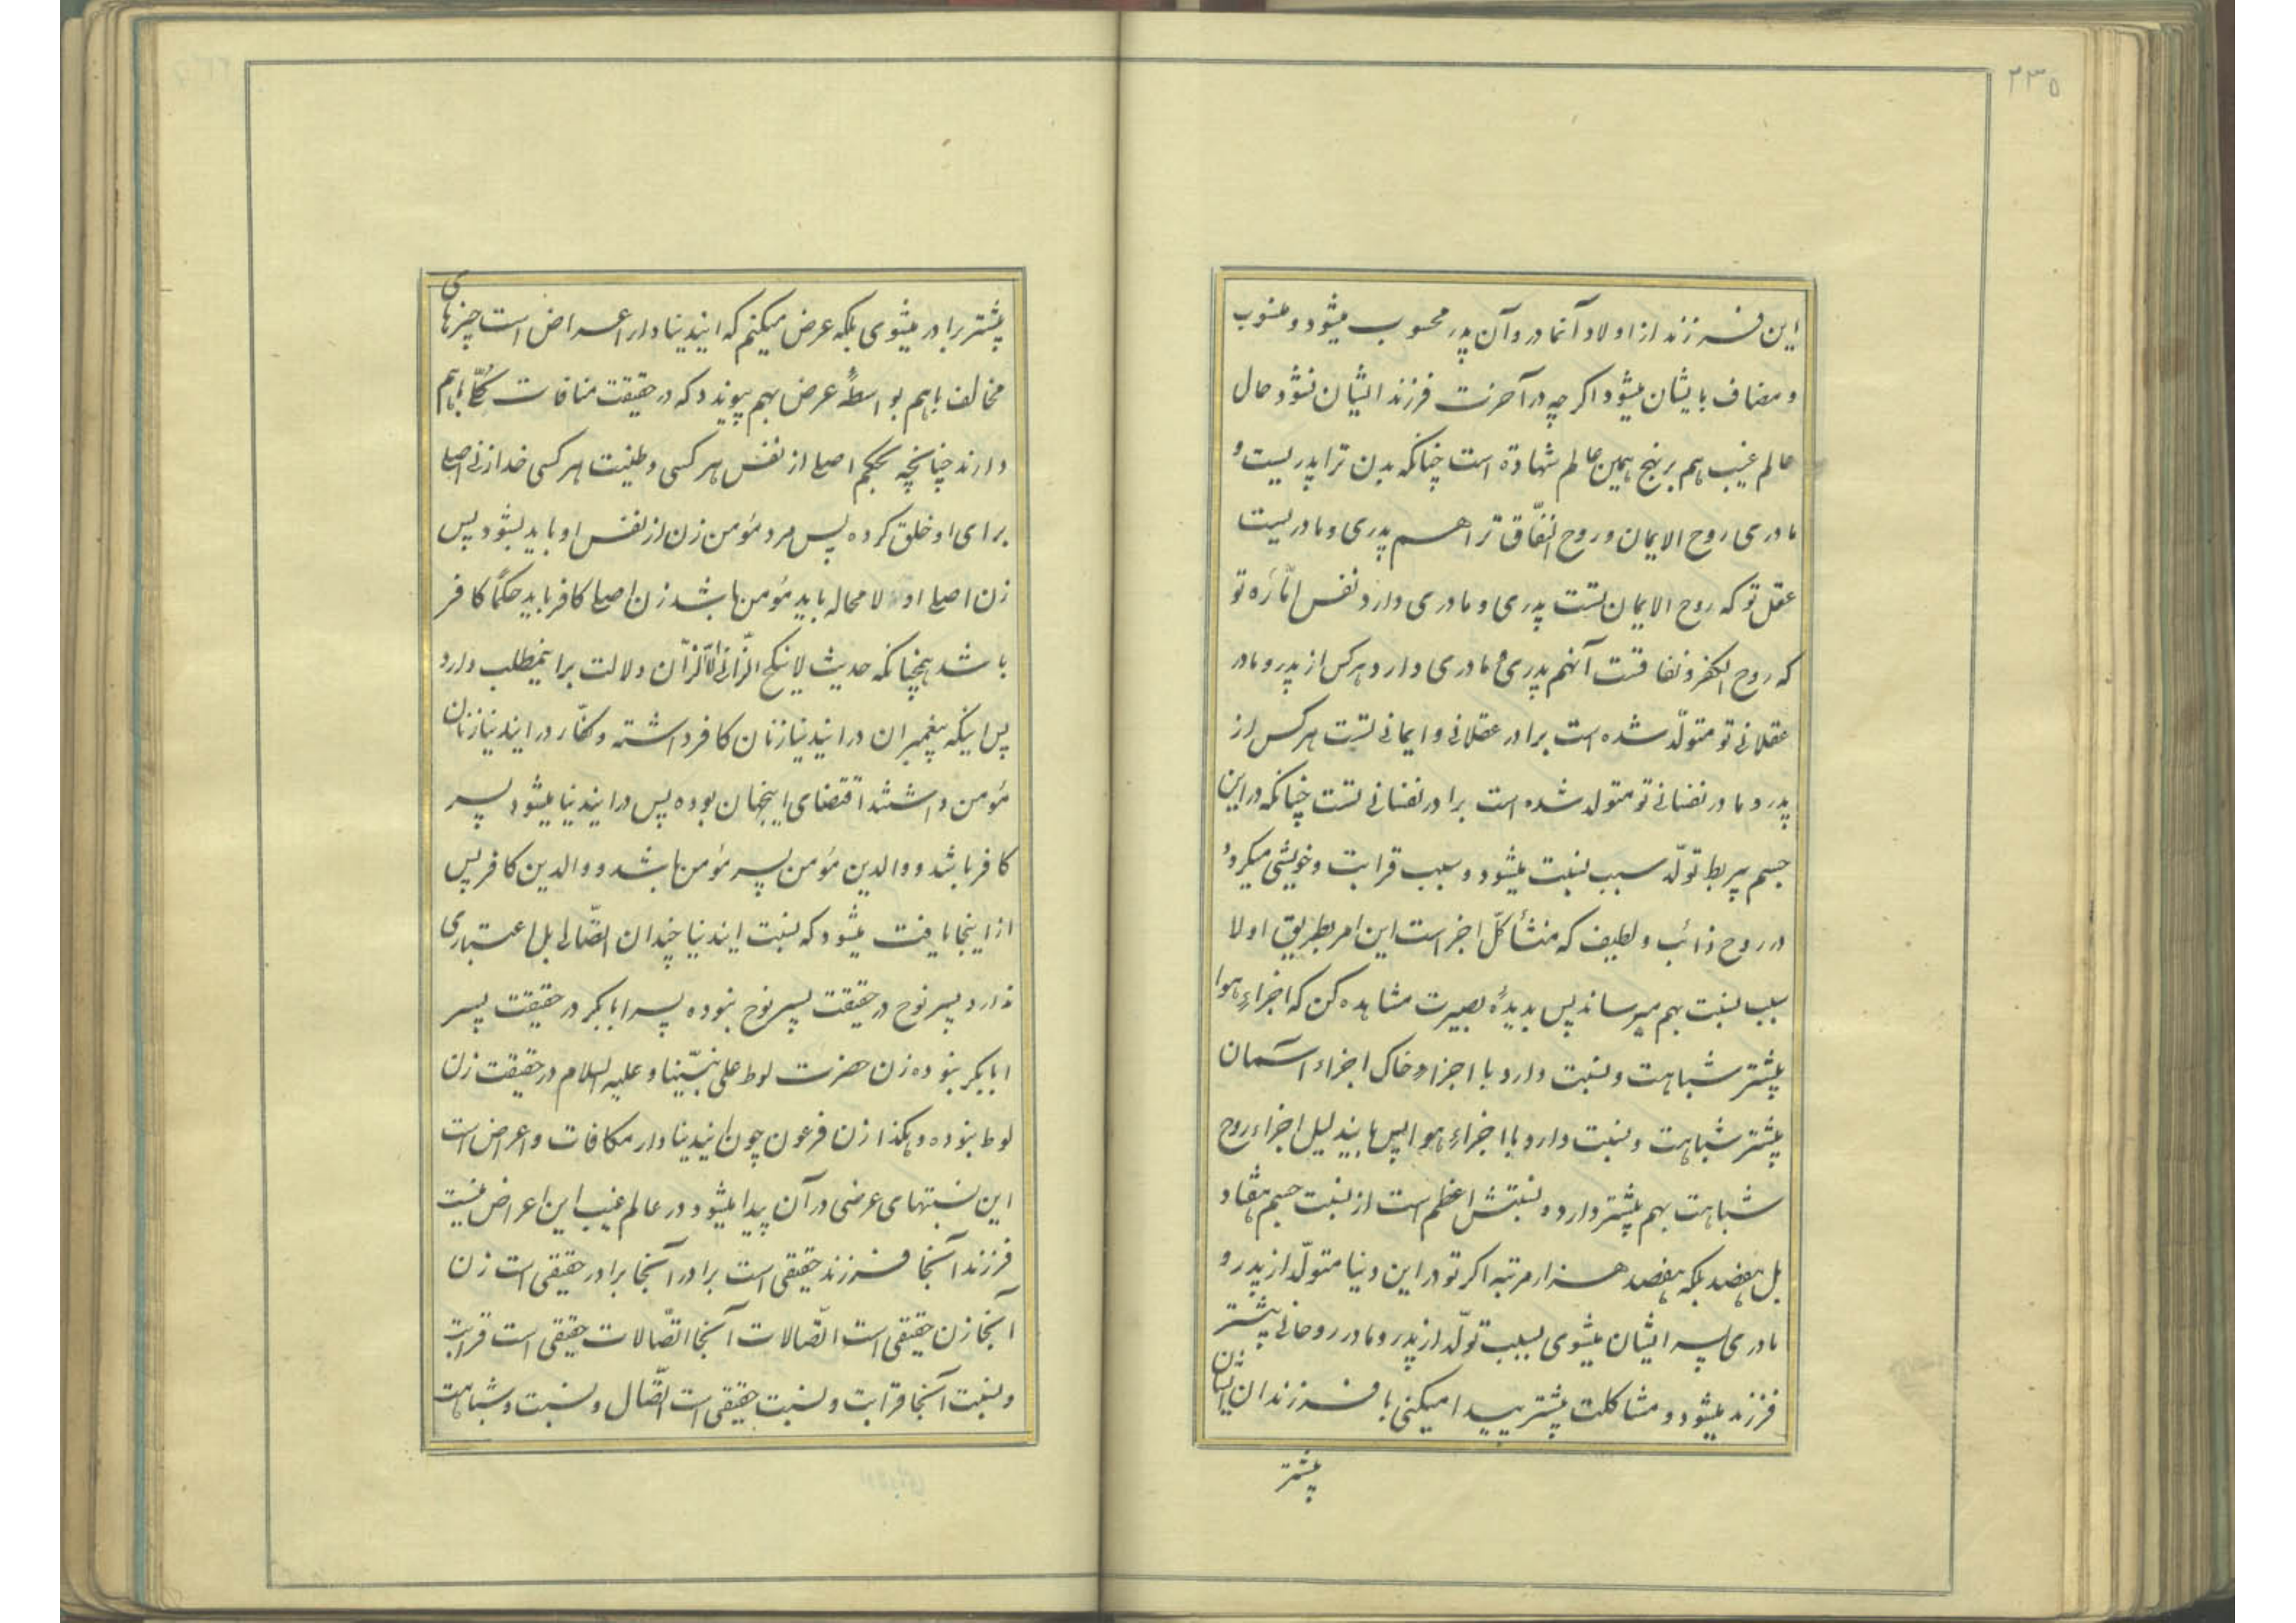 ۲۳۵
این فرزند از اولاد آنمادر و آن پدر محسوب میشود و منسوب
و مضاف بایشان میشود اگر چه در آخرت فرزند ایشان نشود حال
عالم غیب هم بر نهج همین عالم شهادة است چنانکه بدن ترا پدریست و
مادری روح الایمان و روح النفاق ترا هم پدری و مادریست
عقل تو که روح الایمان تست پدری و مادری دارد نفس امّارهٔ تو
که روح الکفر و نفاقتست آنهم پدری و مادری دارد هر کس از پدر و مادر
عقلانی تو متولّد شده است برادر عقلانی و ایمانی تست هر کس از
پدر و مادر نفسانی تو متولد شده است برادر نفسانی تست چنانکه در این
جسم بربط تولّد سبب نسبت میشود و سبب قرابت و خویشی میگردد
در روح ذائب و لطیف که منشأ کلّ اجزاست این امر بطریق اولا
سبب نسبت بهم میرساند پس بدیدهٔ بصیرت مشاهده کن که اجزاء هوا
بیشتر شباهت و نسبت دارد با اجزاء خاک اجزاء آسمان
بیشتر شباهت و نسبت دارد با اجزاء هوا پس باین دلیل اجزاء روح
شباهت بهم بیشتر دارد و نسبتش اعظم است از نسبت جسم هفتاد
بل هفصد بلکه هفصد هزار مرتبه اگر تو در این دنیا متولّد از پدر و
مادری پسر ایشان میشوی بسبب تولّد از پدر و مادر روحانی بیشتر
فرزند میشود و مشاکلت بیشتر پیدا میکنی با فرزندان ایشان
بیشتر
بیشتر برادر میشوی بلکه عرض میکنم که ایندنیا دار اعراض است چیزهای
مخالف باهم بواسطهٔ عرض بهم پیوندد که در حقیقت منافات کلّی باهم
دارند چنانچه بحکم اصلی از نفس هر کسی و طینت هر کسی خدا زنی اصلی
برای او خلق کرده پس مرد مؤمن زن از نفس او باید بشود پس
زن اصلی او لا محاله باید مؤمن باشد زن اصلی کافر باید حکماً کافر
باشد همچنانکه حدیث لا ینکح الزّانی الّا الزّان دلالت بر اینمطلب دارد
پس اینکه پیغمبران در ایندنیا زنان کافر داشته و کفّار در ایندنیا زنان
مؤمن داشتند اقتضای اینجهان بوده پس در ایندنیا میشود پسر
کافر باشد و والدین مؤمن پسر مؤمن باشد و والدین کافر پس
از اینجا یافت میشود که نسبت ایندنیا چندان اتّصالی بل اعتباری
ندارد پسر نوح در حقیقت پسر نوح نبوده پسر ابابکر در حقیقت پسر
ابابکر نبوده زن حضرت لوط علی نبیّنا و علیه السلام در حقیقت زن
لوط نبوده و هکذا زن فرعون چون ایندنیا دار مکافات و اعراض است
این نسبتهای عرضی در آن پیدا میشود در عالم غیب این اعراض نیست
فرزند آنجا فرزند حقیقی است برادر آنجا برادر حقیقی است زن
آنجا زن حقیقی است اتّصالات آنجا اتّصالات حقیقی است قرابت
و نسبت آنجا قرابت و نسبت حقیقی است اتّصال و نسبت و شباهت